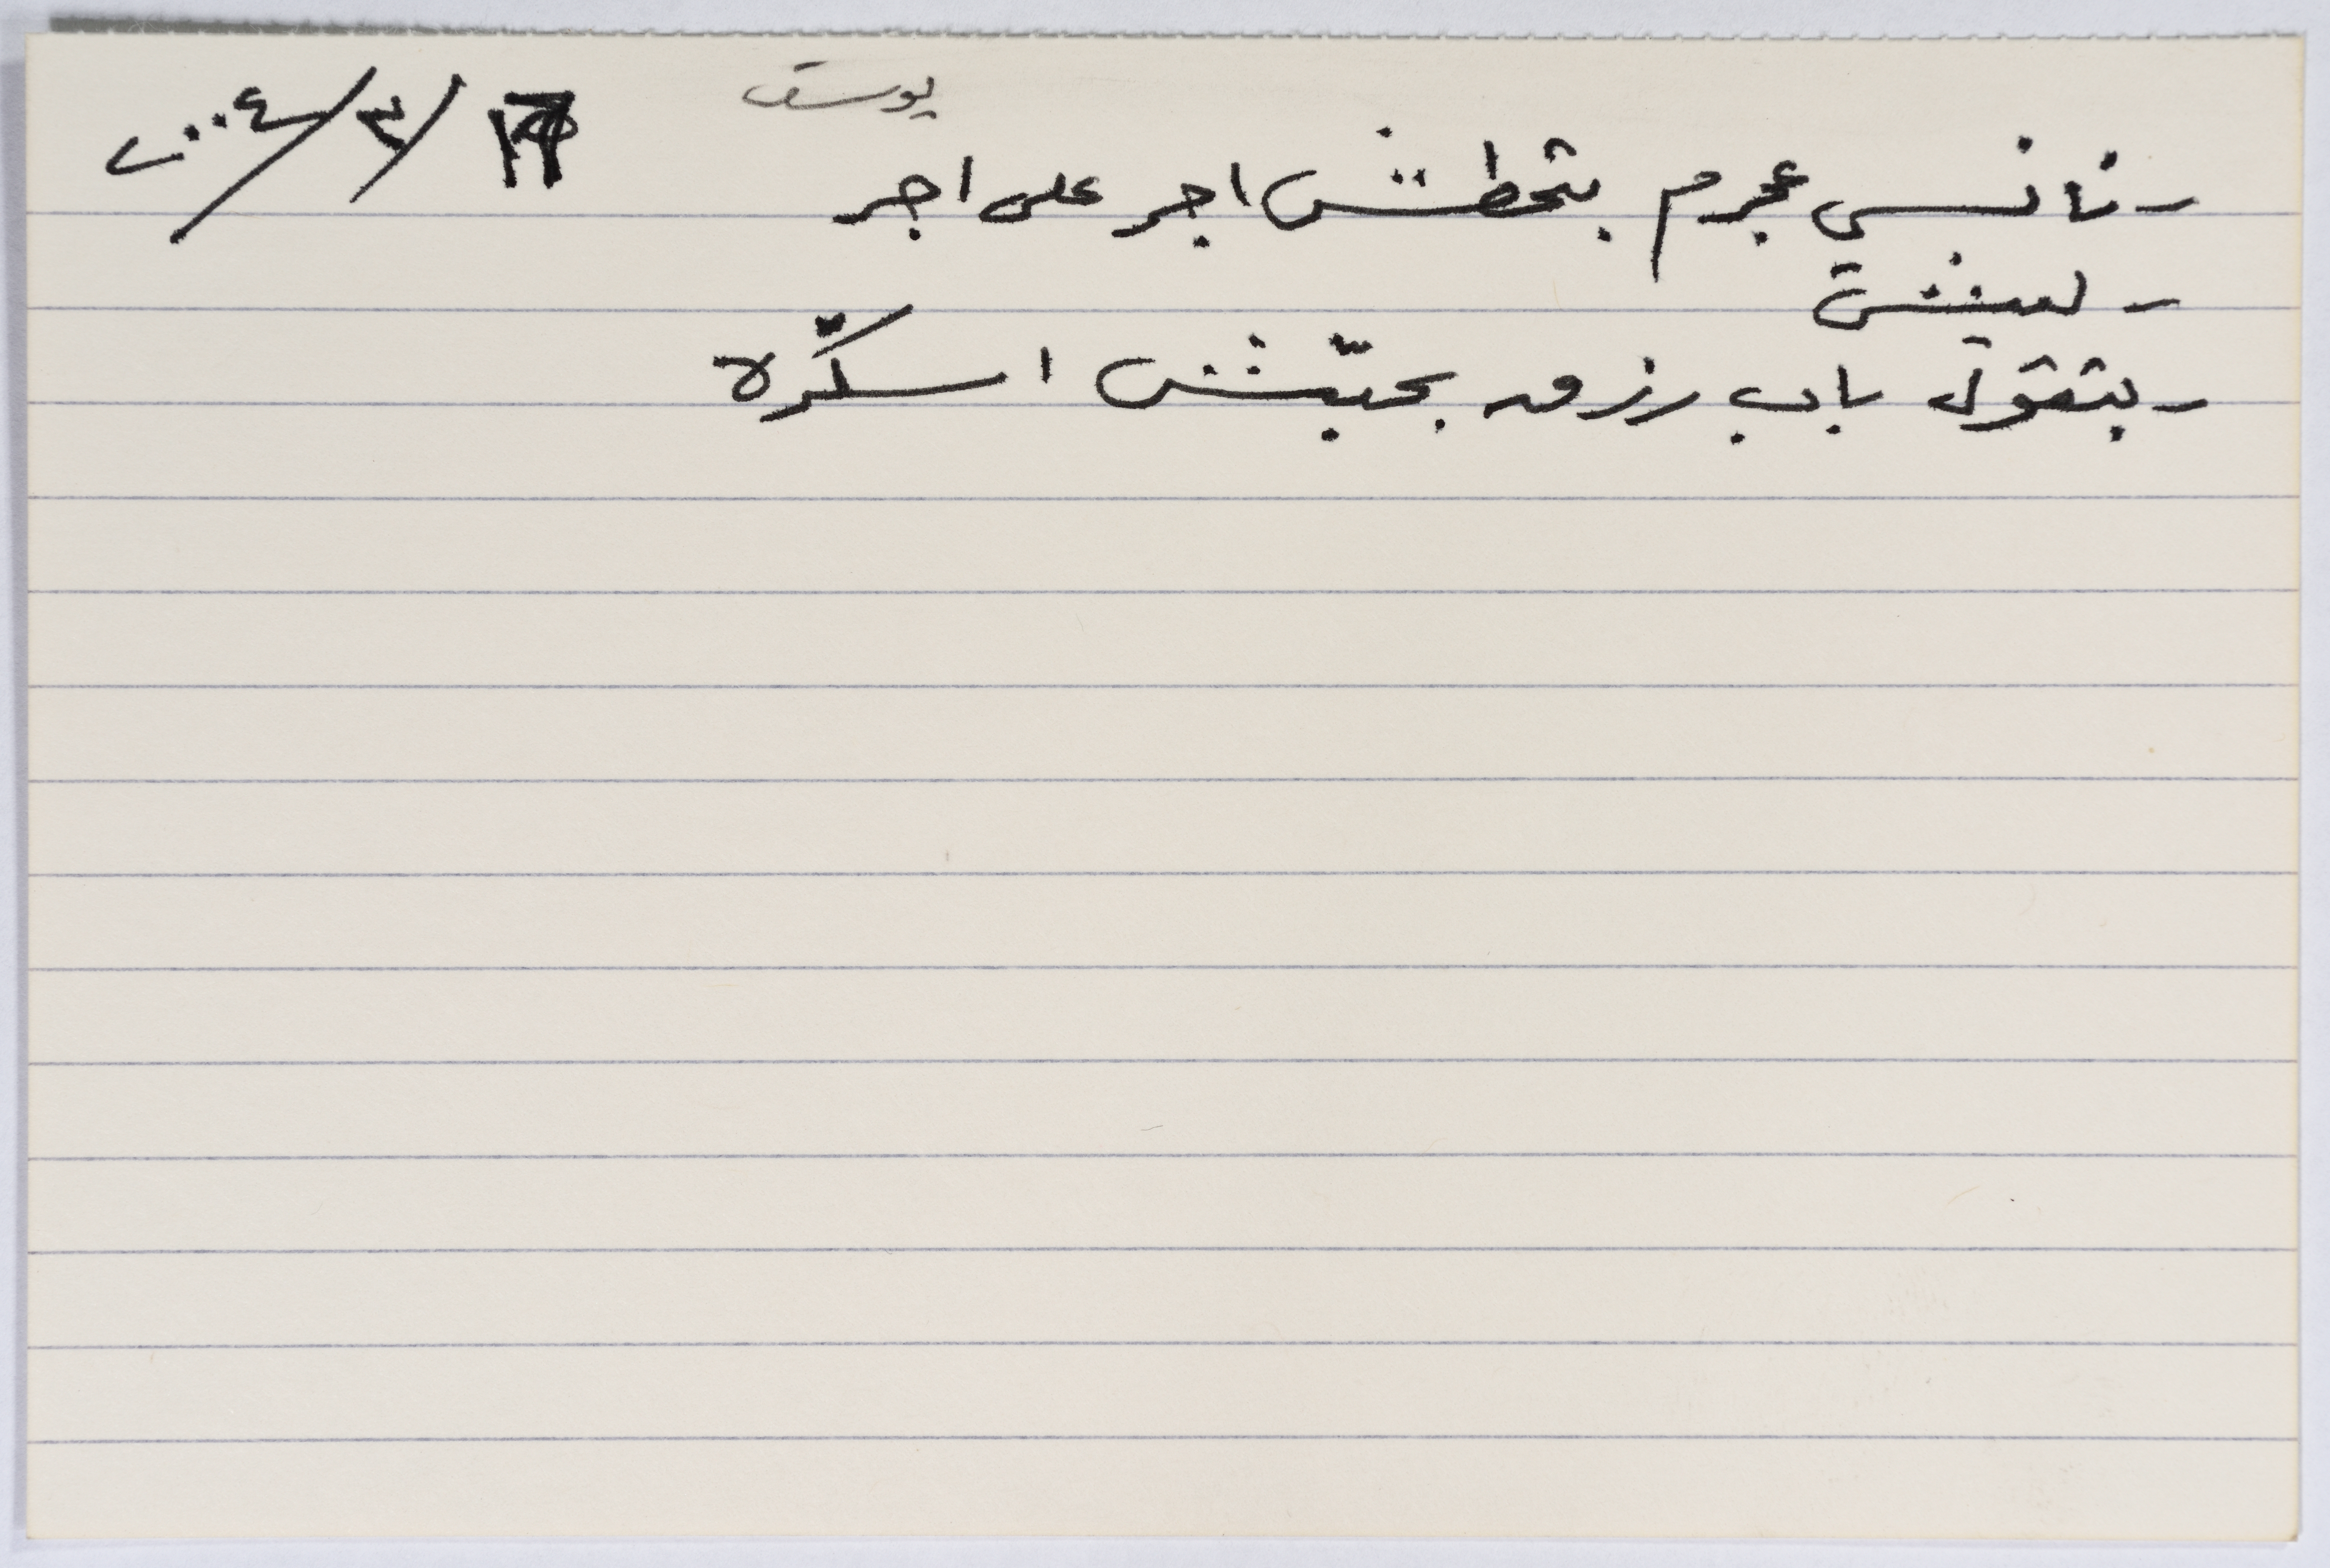 يوسف
/٣/٢٠٠٤
- نانسي عجرم بتحطش اجر على اجر
- ليش
- بتقول باب رزق بحبّش اسكّره